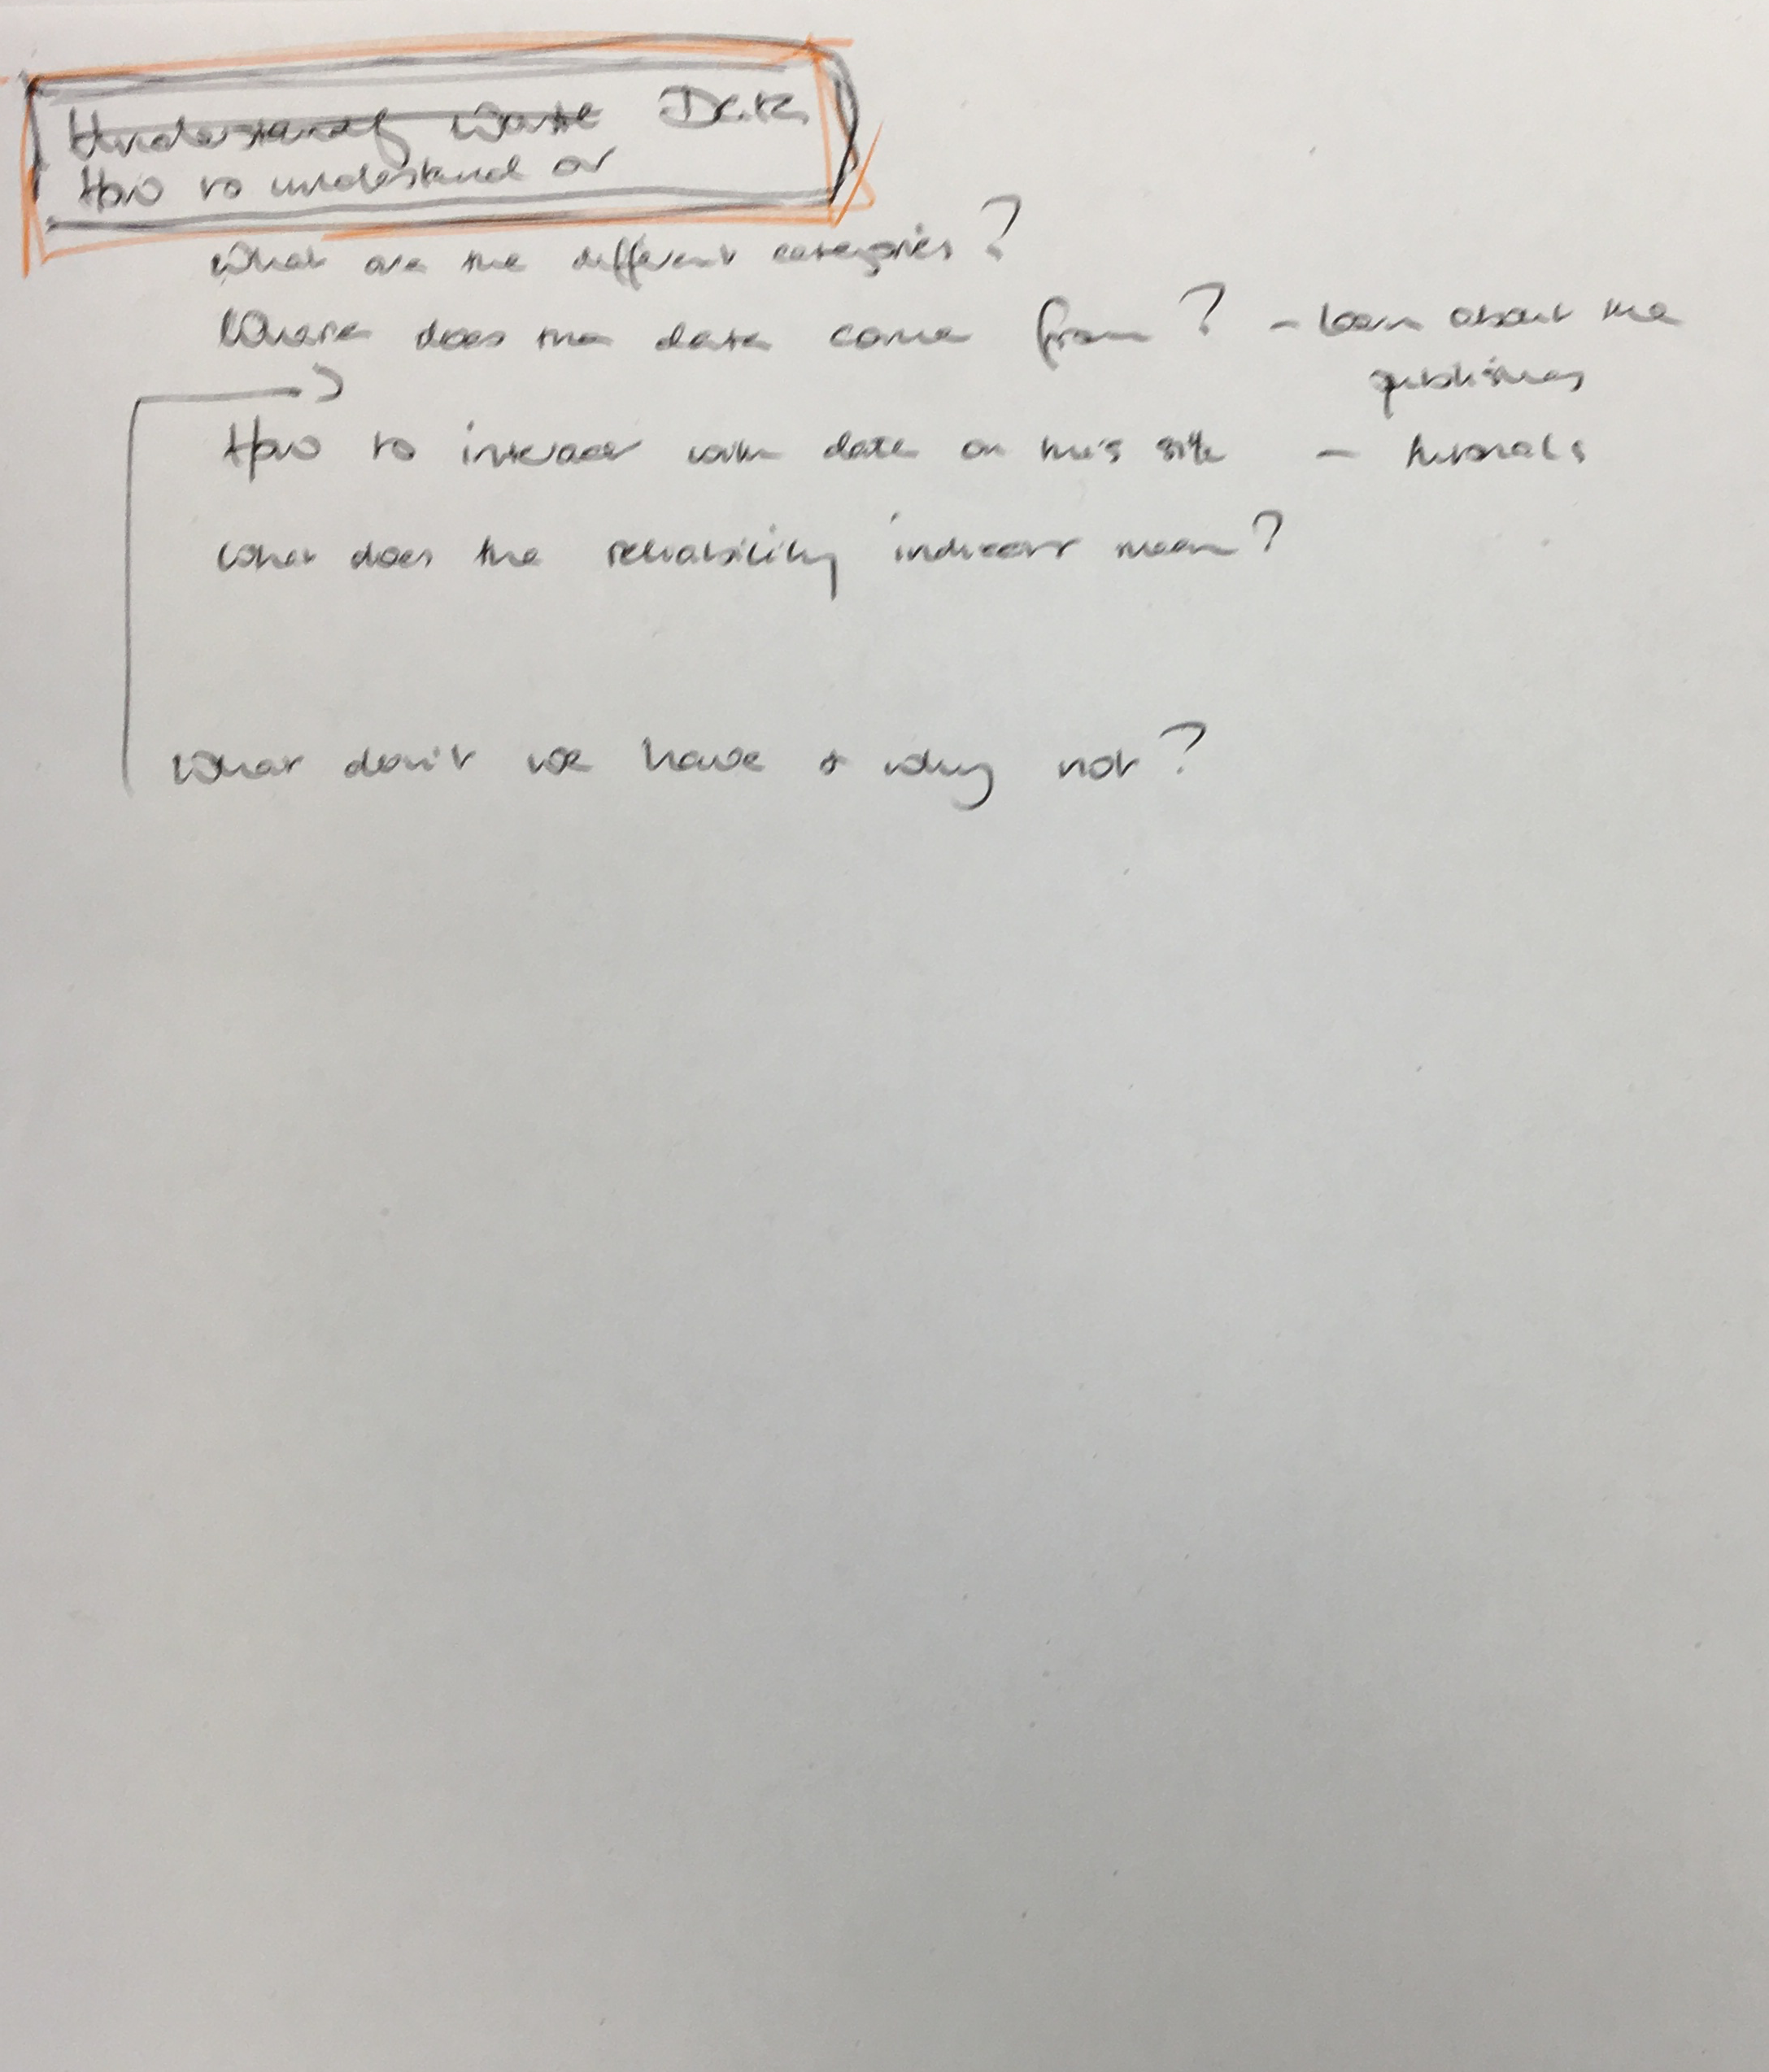 Understand Waste Data
How to understand or
What are the different categories?
Where does the data come from? - learn about the
publishers
How to interact with data on this site - tutorials
What does the reliability indicator mean?
What don't we have & why not?